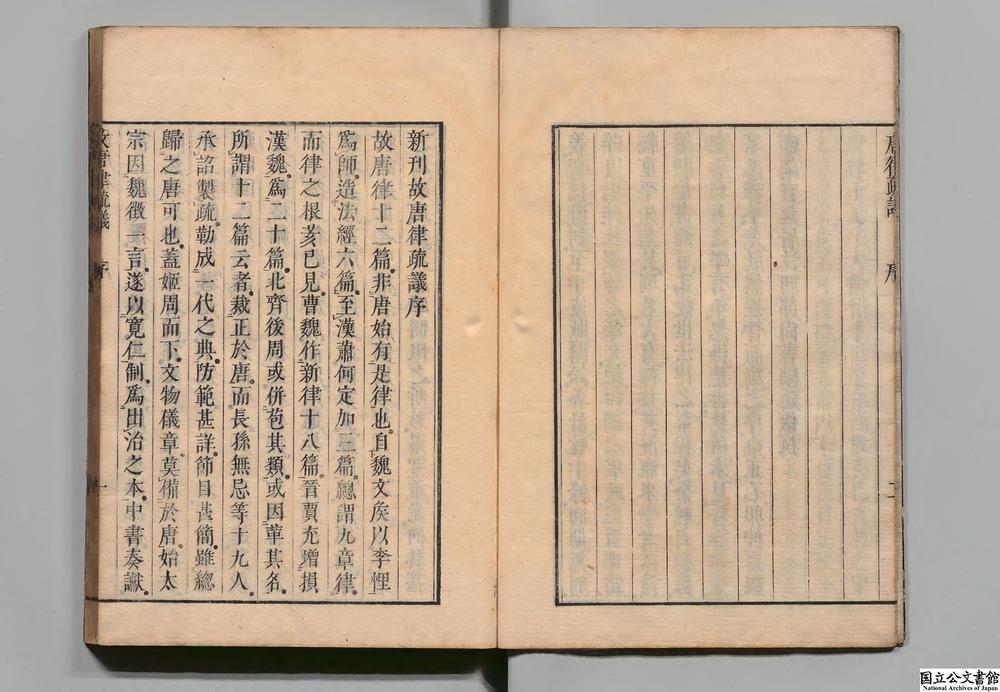 唐律疏議
序
二
新刊故唐律疏議序
故唐律十二篇非唐始有是律也自魏文侯以李悝
爲師造法經六篇至漢蕭何定加三篇總謂九章律
而律之根荄已見曹魏作新律十八篇晉賈充增損
漢魏爲二十篇北齊後周或併苞其類或因革其名
所謂十二篇云者裁正於唐而長孫無忌等十九人
承詔製疏勒成一代之典防範甚詳節目甚簡雖緫
歸之唐可也蓋姬周而下文物儀章莫備於唐始太
宗因魏徵一言遂以寬仁制爲出治之本中書奏讞
故唐律疏議
序
一
国立公文書館
National Archives of Japan